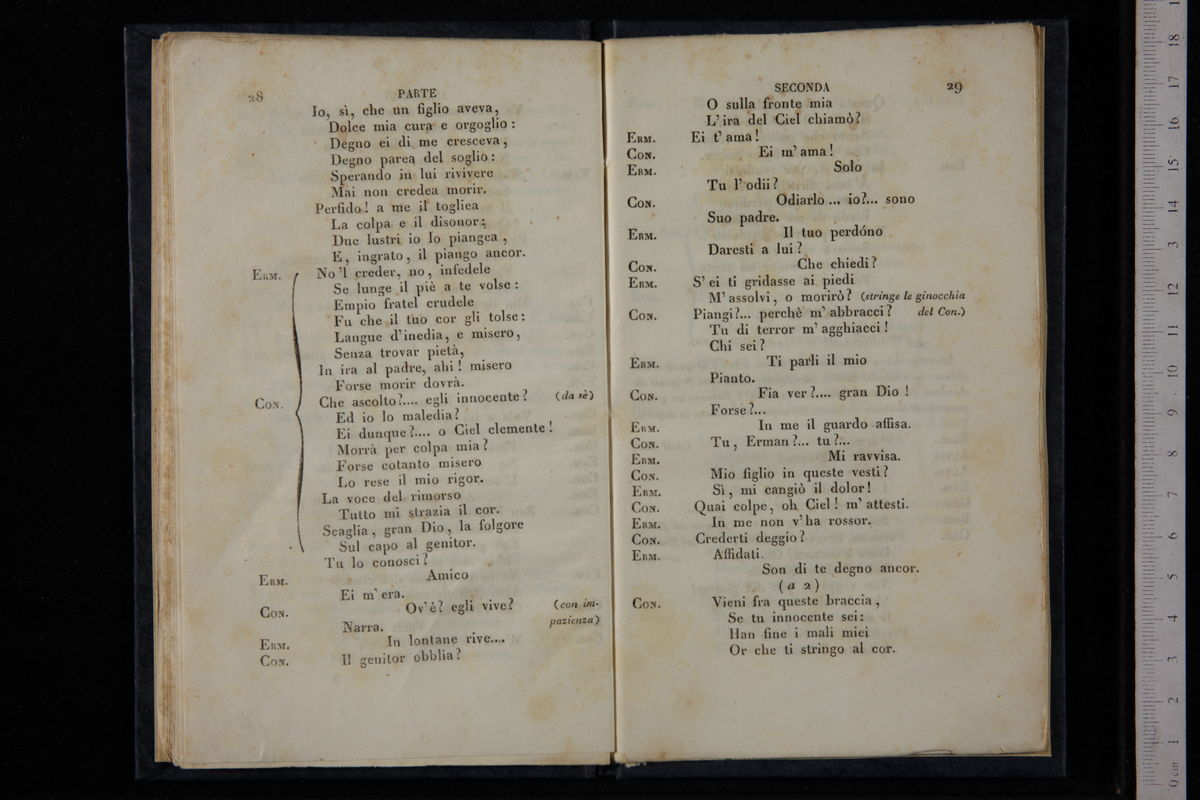 28
PARTE
Io, sì, che un figlio aveva,
Dolce mia cura e orgoglio:
Degno ei di me cresceva,
Degno parea del soglio:
Sperando in lui rivivere
Mai non credea morir.
Perfido! a me il toglica
La colpa e il disonor;
Due lustri io lo piangea,
E, ingrato, il piango ancor.
ERM. No'l creder, no, infedele
Se lunge il piè a te volse:
Empio fratel crudele
Fu che il tuo cor gli tolse:
Langue d'inedia, e misero,
Senza trovar pietà,
In ira al padre, ahi! misero
Forse morir dovrà.
CON. Che ascolto?.... egli innocente? (da sè)
Ed io lo maledia?
Ei dunque?.... o Ciel clemente!
Morrà per colpa mia?
Forse cotanto misero
Lo rese il mio rigor.
La voce del rimorso
Tutto mi strazia il cor.
Scaglia, gran Dio, la folgore
Sul capo al genitor.
Tu lo conosci?
ERM. Amico
Ei m'era.
CON. Ov'è? egli vive? (con im-
Narra. pazienza)
ERM. In lontane rive....
CON. Il genitor obblia?
SECONDA
29
O sulla fronte mia
L'ira del Ciel chiamò?
ERM. Ei t'ama!
CON. Ei m'ama!
ERM. Solo
Tu l'odii?
CON. Odiarlo... io?... sono
Suo padre.
ERM. Il tuo perdóno
Daresti a lui?
CON. Che chiedi?
ERM. S'ei ti gridasse ai piedi
M'assolvi, o morirò? (stringe le ginocchia
CON. Piangi?... perchè m'abbracci? del Con.)
Tu di terror m'agghiacci!
Chi sei?
ERM. Ti parli il mio
Pianto.
CON. Fia ver?.... gran Dio!
Forse?...
ERM. In me il guardo affisa.
CON. Tu, Erman?... tu?...
ERM. Mi ravvisa.
CON. Mio figlio in queste vesti?
ERM. Sì, mi cangiò il dolor!
CON. Quai colpe, oh Ciel! m'attesti.
ERM. In me non v'ha rossor.
CON. Crederti deggio?
ERM. Affidati.
Son di te degno ancor.
(a 2)
CON. Vieni fra queste braccia,
Se tu innocente sei:
Han fine i mali miei
Or che ti stringo al cor.